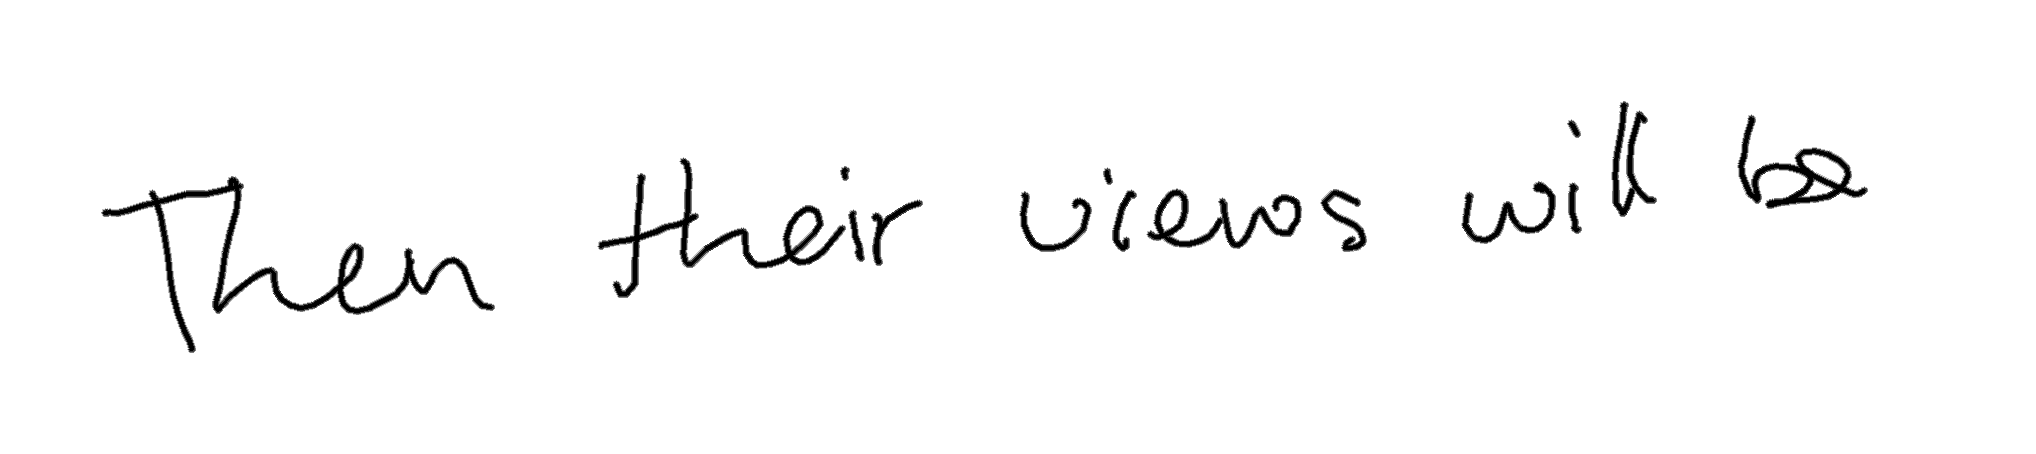 Then their views will be